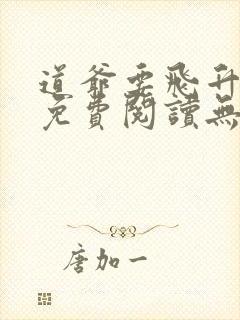 道爺要飛升
免費閱讀無
唐加一